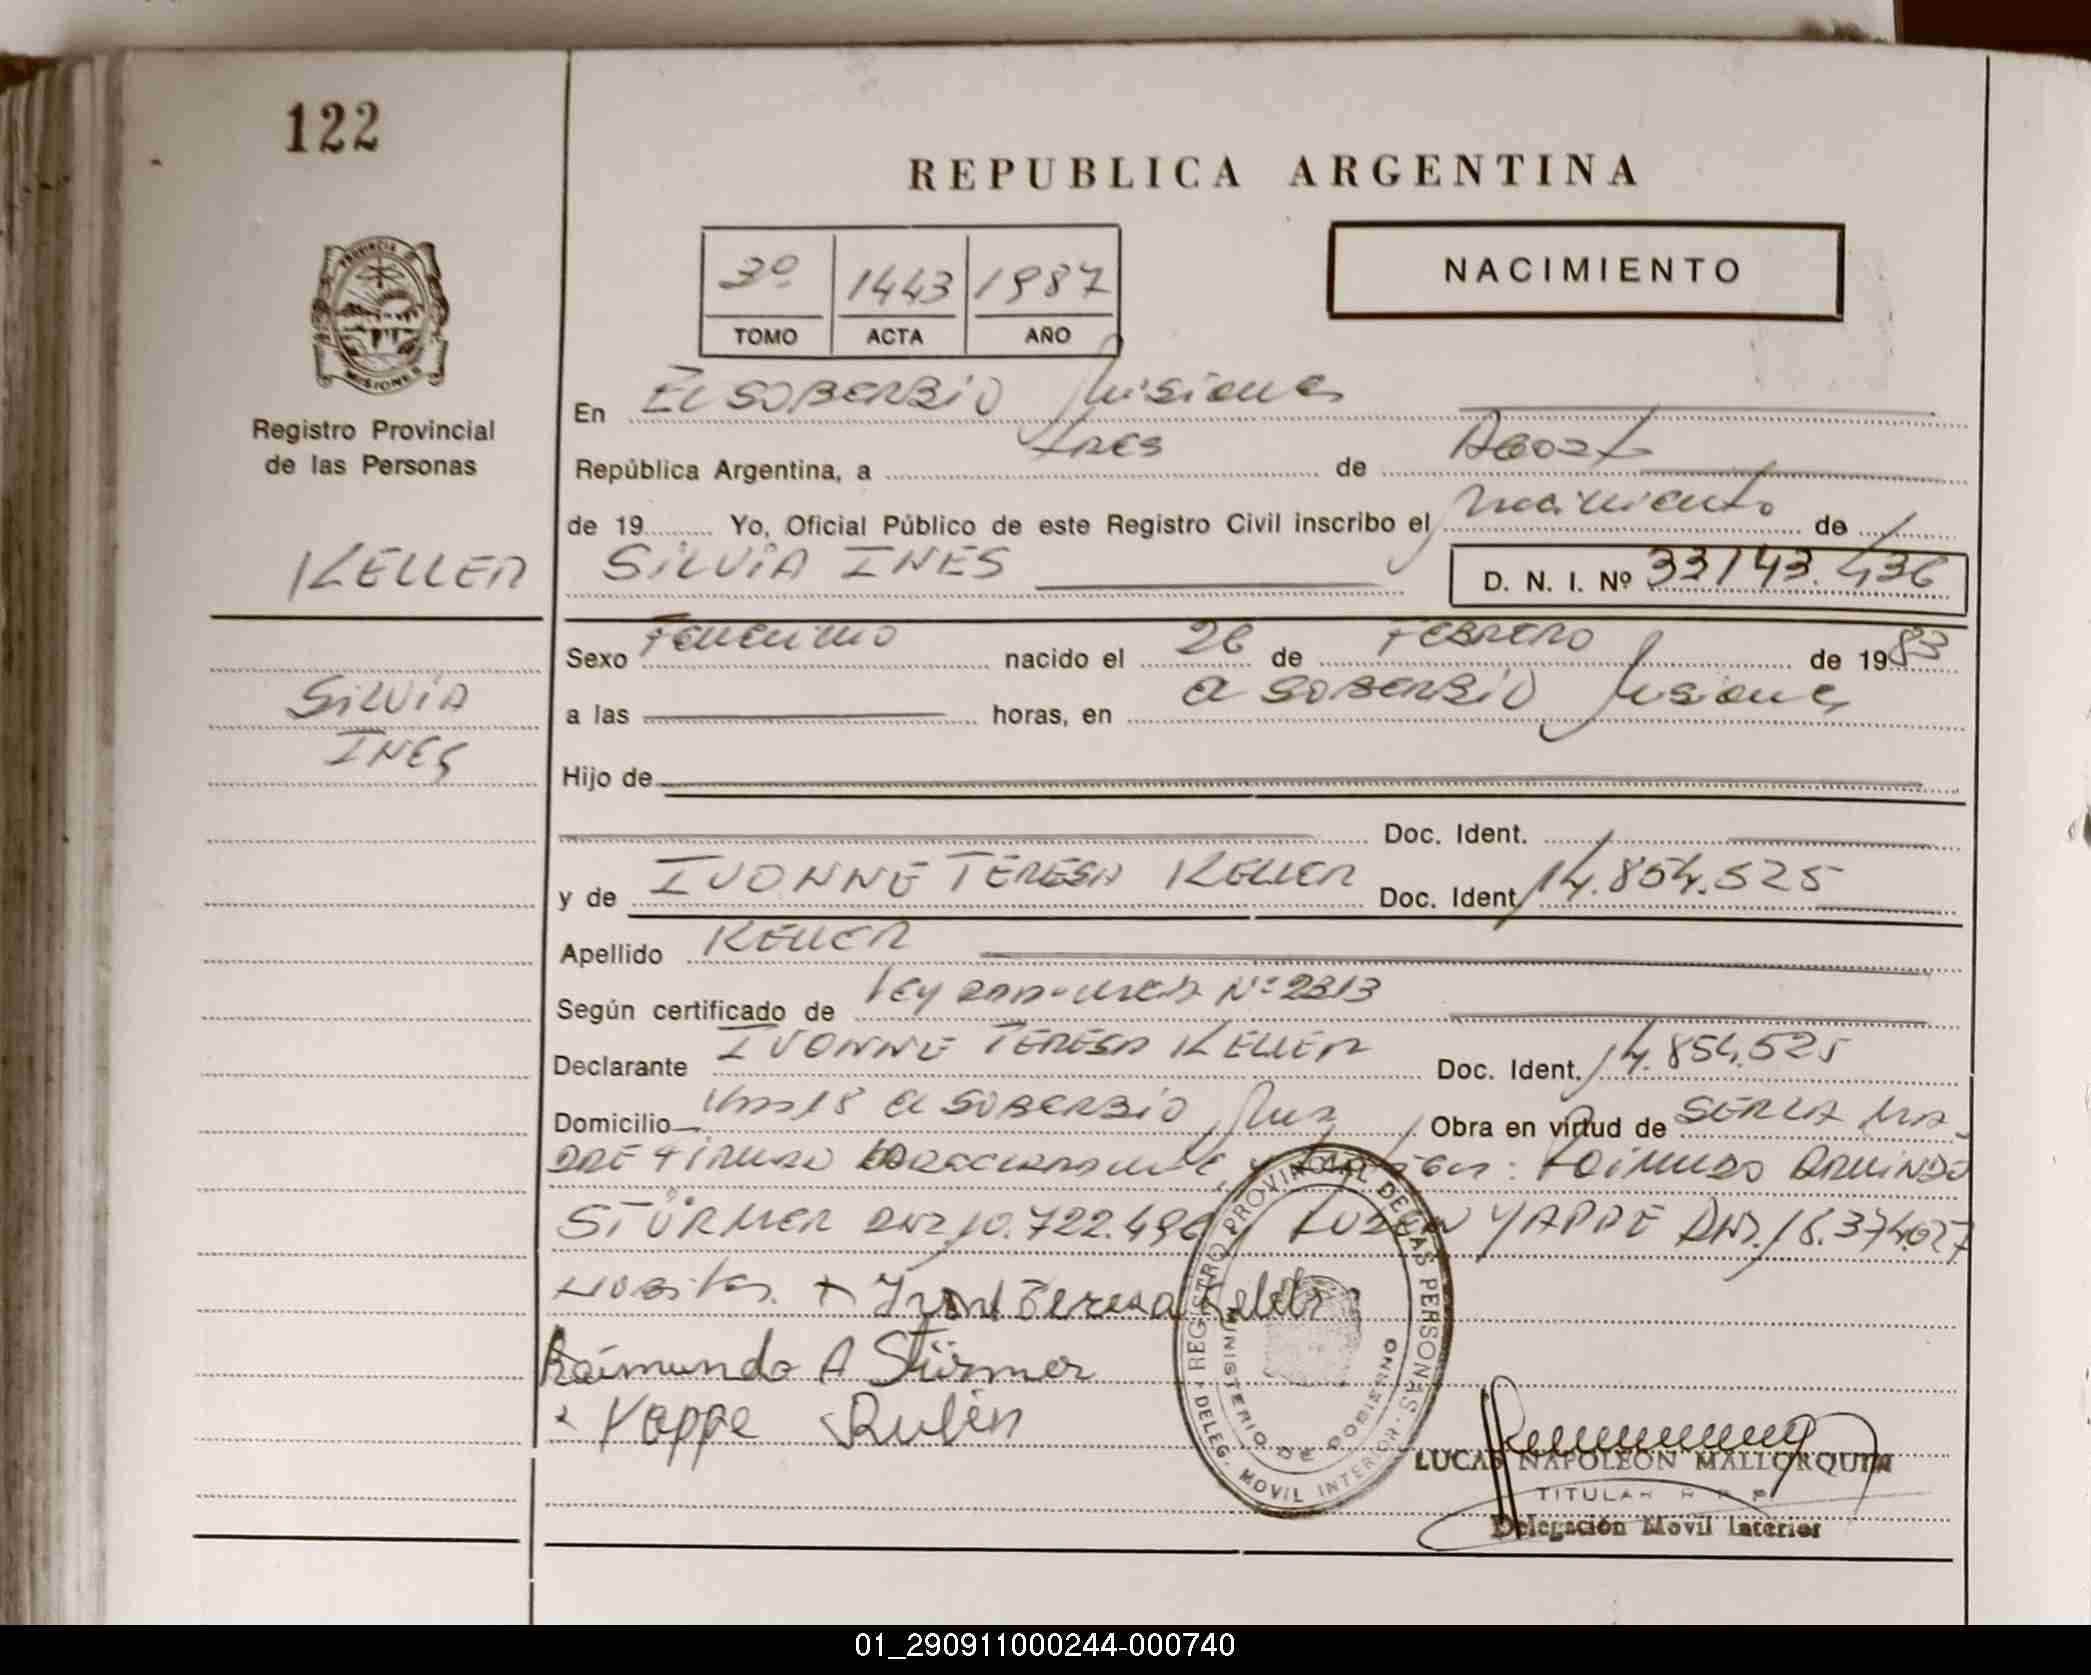 122
REPUBLICA ARGENTINA
3º 1443 1987
TOMO ACTA AÑO
NACIMIENTO
PROVINCIA
MISIONES
Registro Provincial
de las Personas
En EL SOBERBIO Misiones
República Argentina, a tres de Agosto
de 19 Yo, Oficial Público de este Registro Civil inscribo el nacimiento de
KELLER
SILVIA INES D. N. I. Nº 33143.436
Sexo Femenino nacido el 26 de FEBRERO de 1983
SILVIA
INES
a las horas, en El SOBERBIO Misiones
Hijo de
Doc. Ident.
y de IVONNE TERESA KELLER Doc. Ident. 14.854.525
Apellido KELLER
Según certificado de Ley Nº 2313
Declarante IVONNE TERESA KELLER Doc. Ident. 14.854.525
Domicilio El SOBERBIO Mnes Obra en virtud de SER LA MA
DRE : RAIMUNDO ARMINDO
STÜRMER DNI 10.722.496 RUBEN YAPPE DNI. 18.374.027
Teresa Keller
Raimundo A Stürmer
x Yappe Rubén
REGISTRO PROVINCIAL DE LAS PERSONAS
MINISTERIO DE GOBIERNO
DELEG. MOVIL INTERIOR
LUCAS NAPOLEON MALLORQUIN
TITULAR R P P
Delegación Movil Interior
01_290911000244-000740